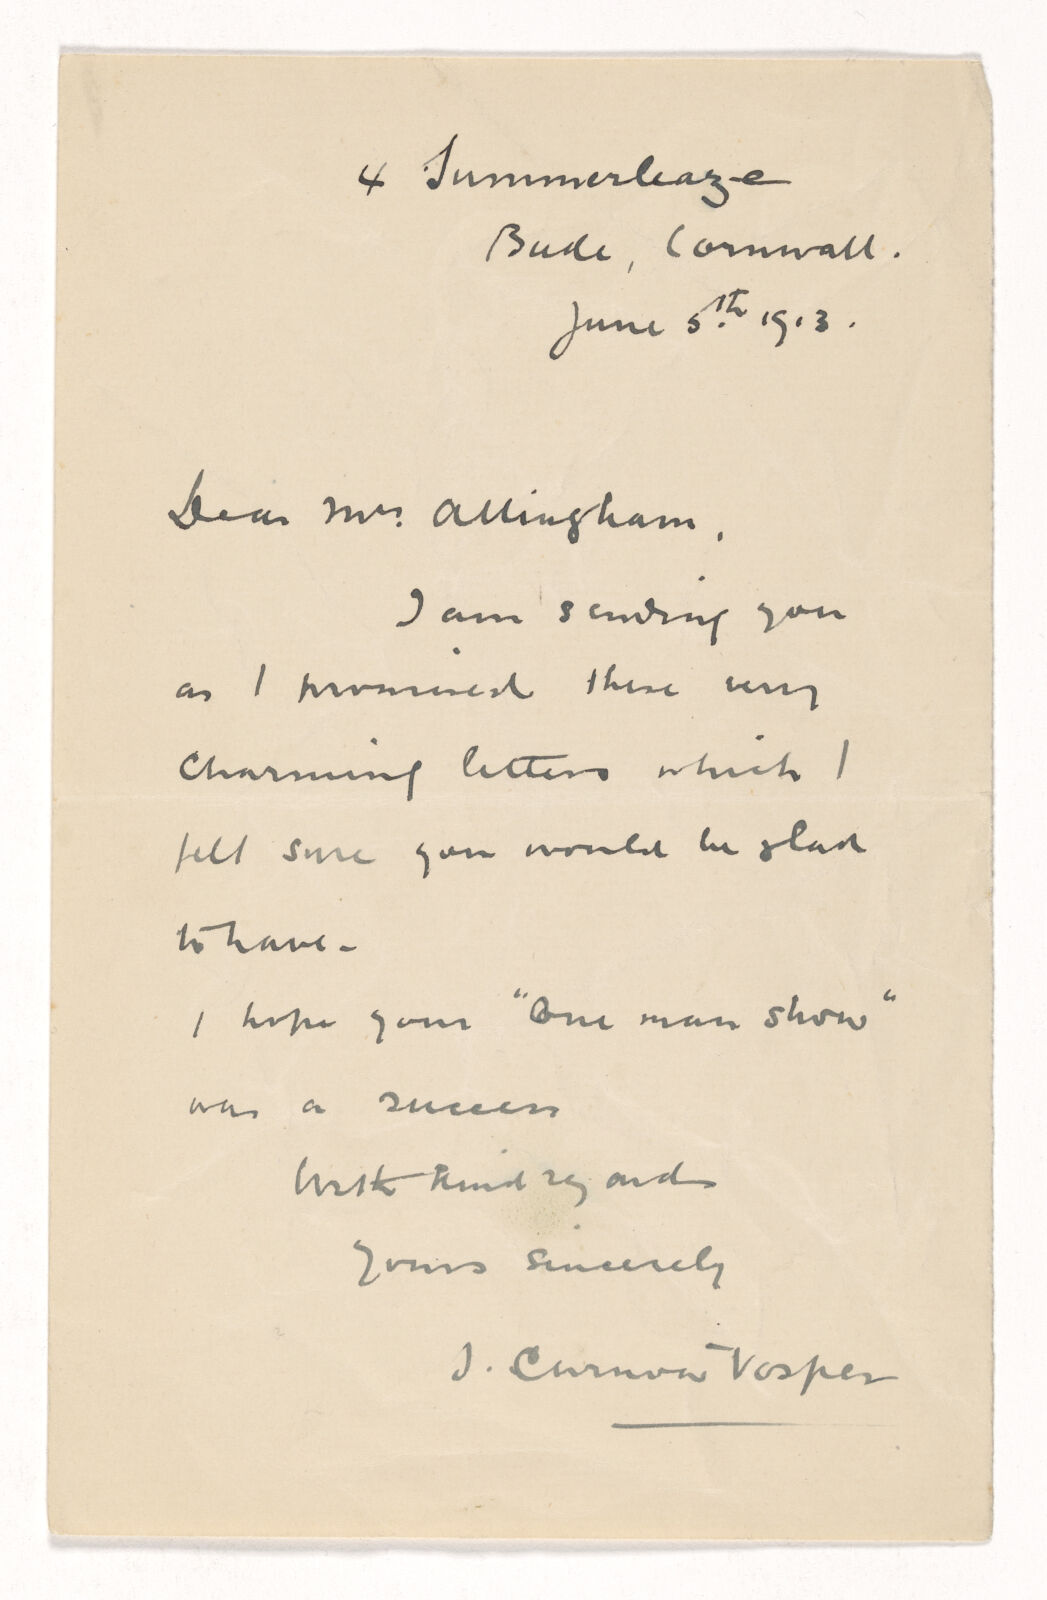 4 Summerleaze
Bude, Cornwall.
June 5th 1913.
Dear Mrs. Allingham,
I am sending you
as I promised these very
charming letters which I
felt sure you would be glad
to have -
I hope your "One man show"
was a success
With kind regards
Yours sincerely
S. Curnow Vosper